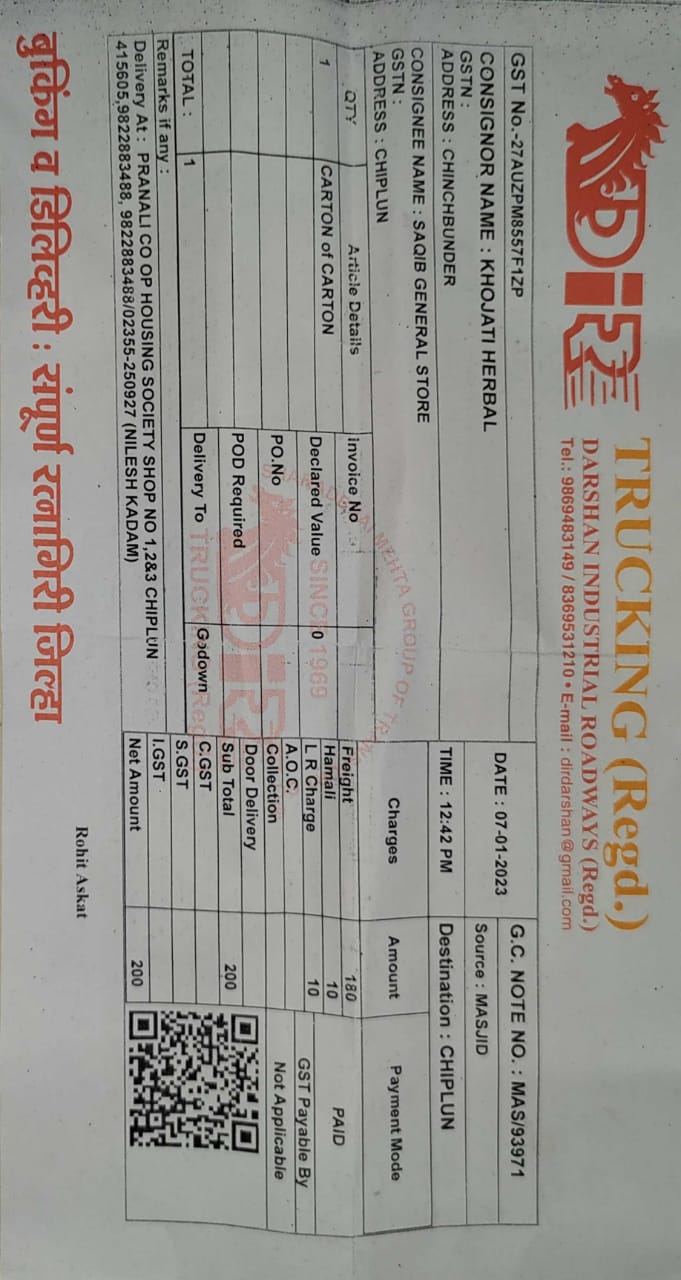 DIR
TRUCKING (Regd.)
DARSHAN INDUSTRIAL ROADWAYS (Regd.)
Tel.: 9869483149 / 8369531210 • E-mail : dirdarshan@gmail.com
GST No.-27AUZPM8557F1ZP
G.C. NOTE NO. : MAS/93971
CONSIGNOR NAME : KHOJATI HERBAL
DATE : 07-01-2023
Source : MASJID
GSTN :
ADDRESS : CHINCHBUNDER
TIME : 12:42 PM
Destination : CHIPLUN
CONSIGNEE NAME : SAQIB GENERAL STORE
GSTN :
ADDRESS : CHIPLUN
Charges
Amount
Payment Mode
QTY
Article Details
Invoice No
Freight
180
PAID
1
CARTON of CARTON
Declared Value
0
Hamali
10
L R Charge
10
GST Payable By
PO.No
A.O.C.
Collection
Not Applicable
POD Required
Door Delivery
Sub Total
200
TOTAL :
1
Delivery To
Godown
C.GST
S.GST
Remarks if any :
I.GST
Delivery At : PRANALI CO OP HOUSING SOCIETY SHOP NO 1,2&3 CHIPLUN
415605,9822883488, 9822883488/02355-250927 (NILESH KADAM)
Net Amount
200
MEHTA GROUP OF
SINCE 1969
DIR
Rohit Askat
बुकिंग व डिलिव्हरी : संपूर्ण रत्नागिरी जिल्हा